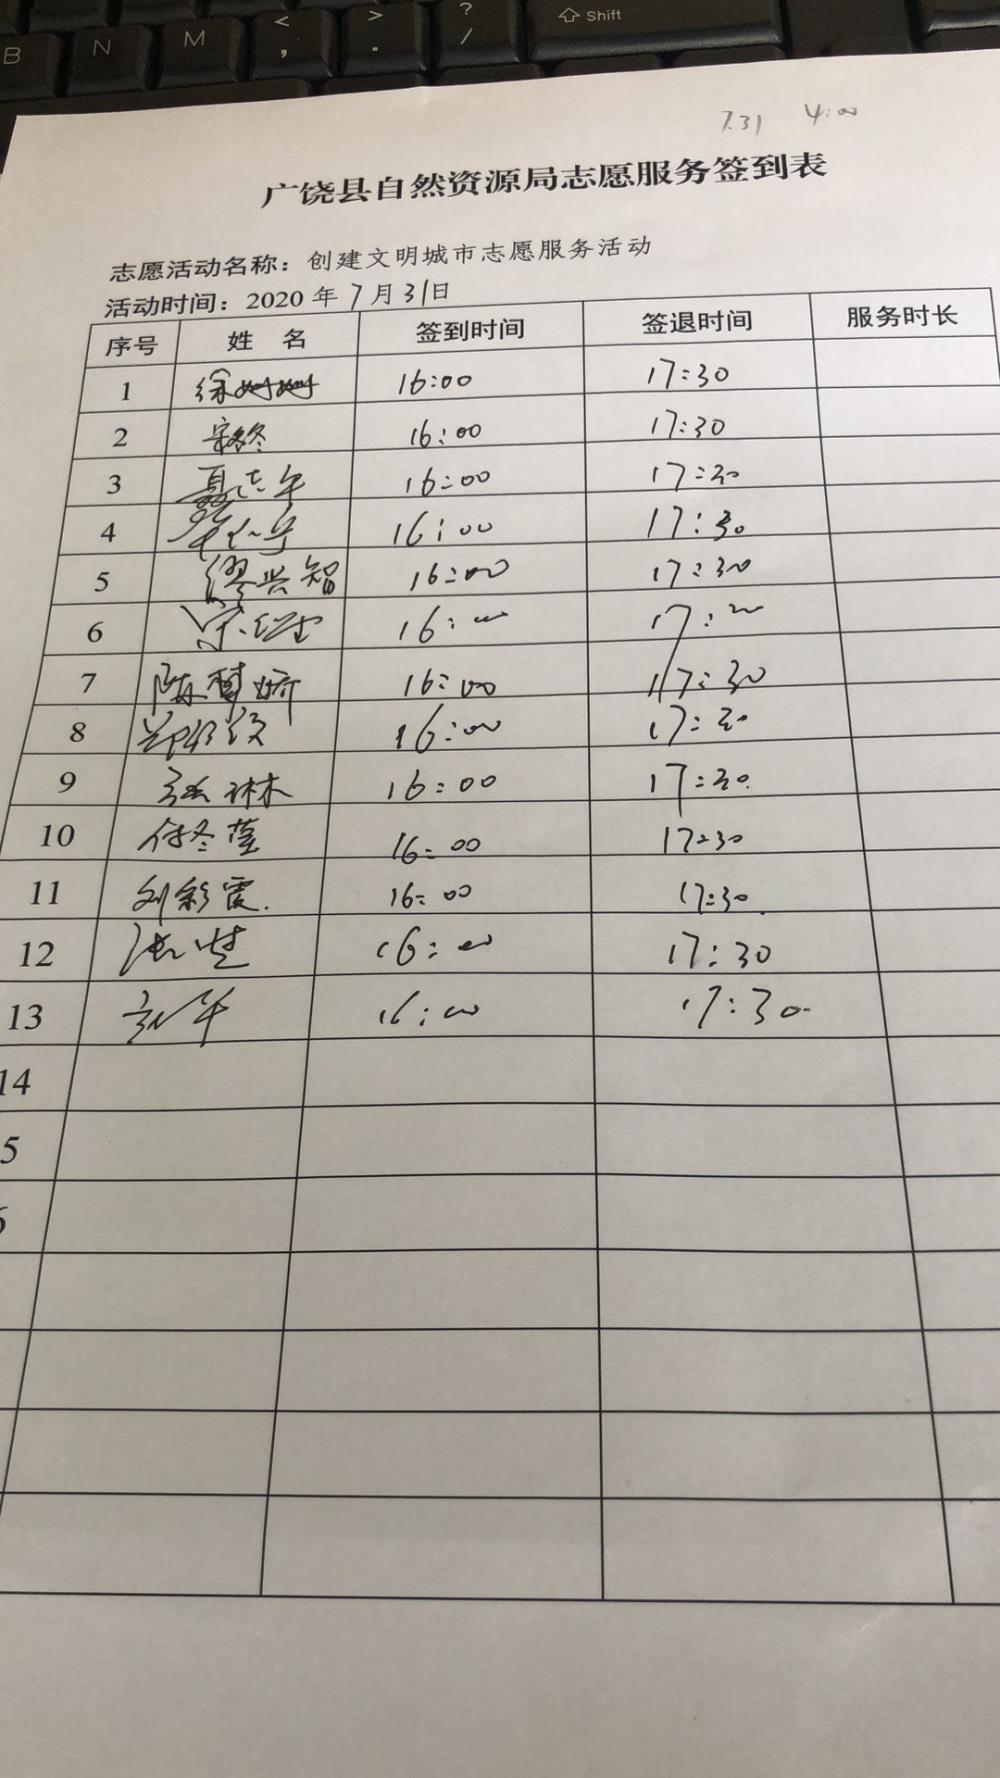 B N M < , > . ? / Shift
7.31 4:00
广饶县自然资源局志愿服务签到表
志愿活动名称：创建文明城市志愿服务活动
活动时间：2020年7月31日
序号 姓 名 签到时间 签退时间 服务时长
1 徐姗姗 16:00 17:30
2 16:00 17:30
3 16:00 17:30
4 16:00 17:30
5 缪兴智 16:00 17:30
6 16:00
7 陈梦娇 16:00 17:30
8 16:00 17:30
9 张琳 16:00 17:30
10 16:00 17:30
11 刘彩霞. 16:00 17:30
12 16:00 17:30
13 16:00 17:30
14
5
6